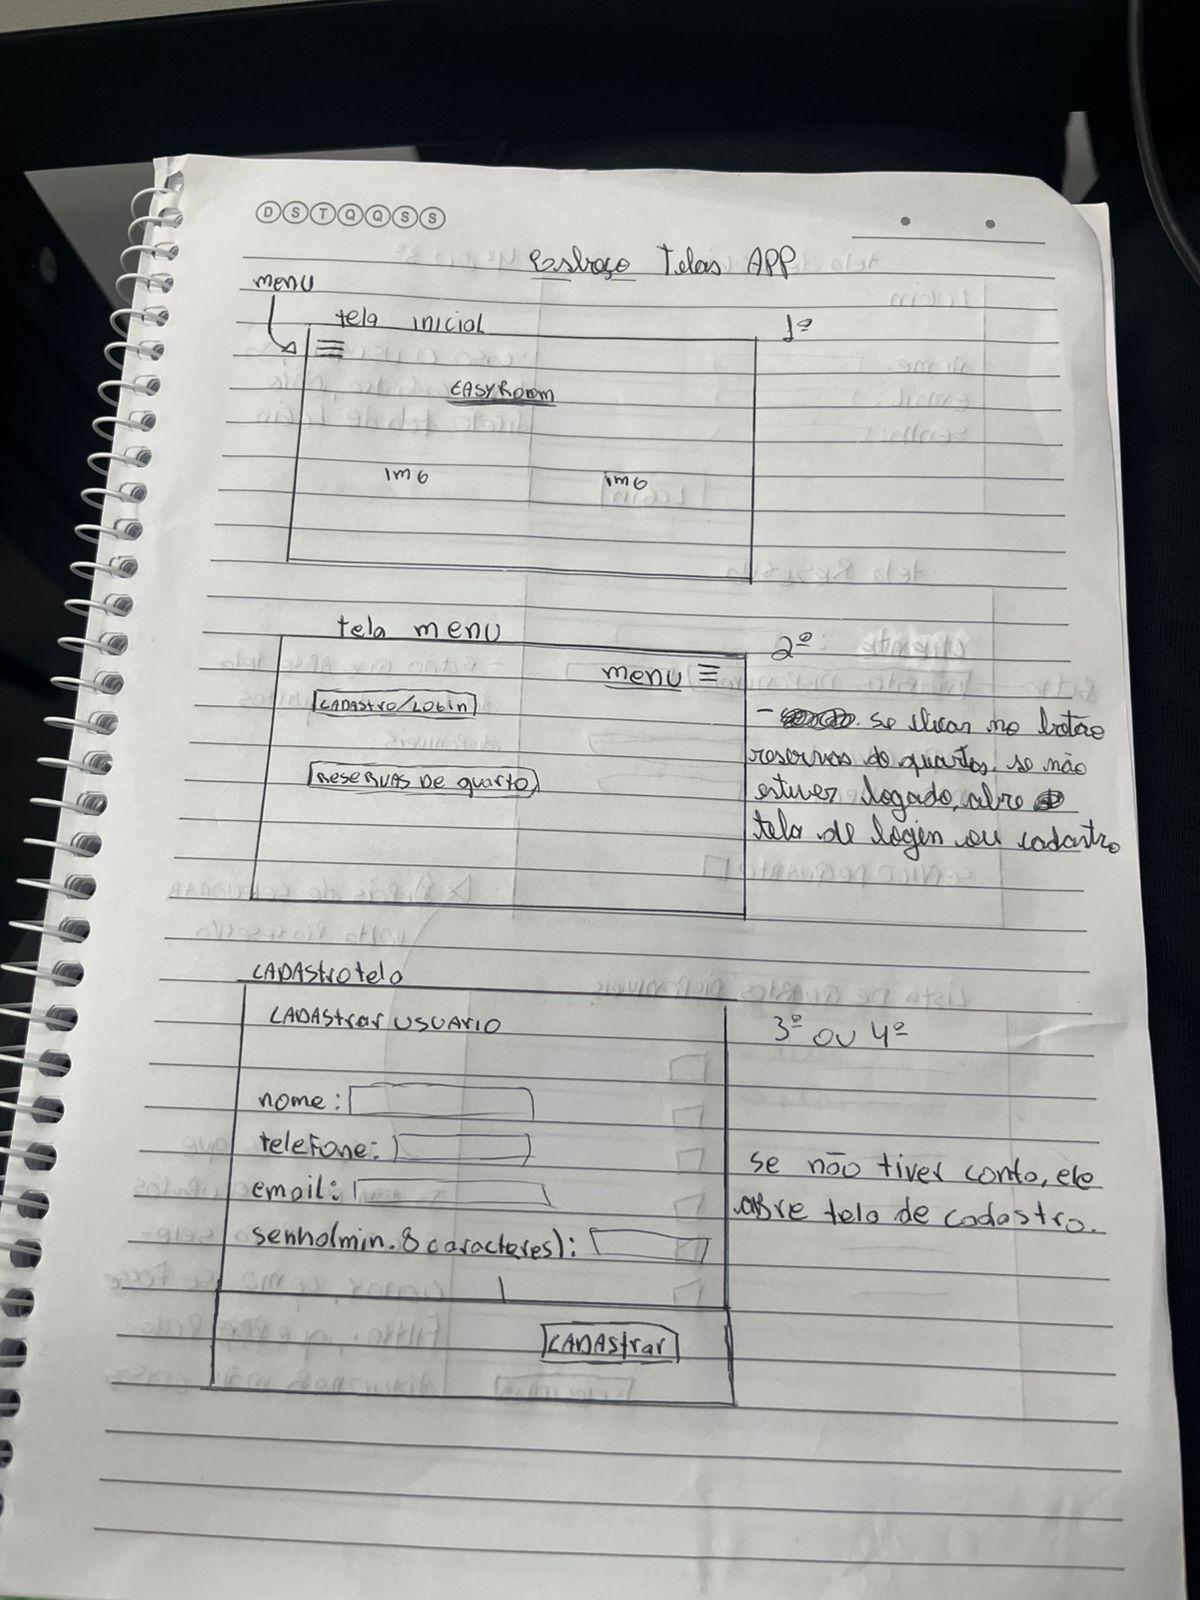 D S T Q Q S S
Esboço Telas APP
menu
tela inicial
1º
EASYROOM
img
img
tela menu
2º
menu
CADASTRO/LOGIN
RESERVAS DE quarto
- se clicar no botão
reservas de quartos, se não
estiver logado, abre
tela de login ou cadastro
CADAStro tela
CADAStrar USUARIO
3º ou 4º
nome:
telefone:
email:
senha(min. 8 caracteres):
se não tiver conta, ele
abre tela de cadastro.
CADAStrar